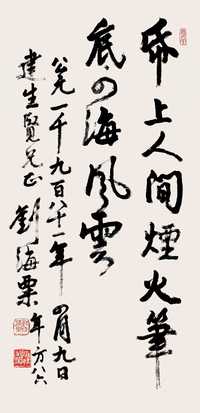 帋上人間煙火筆
底四海風雲
公元一千九百八十一年四月九日
建生賢兄正 劉海粟 年方八六